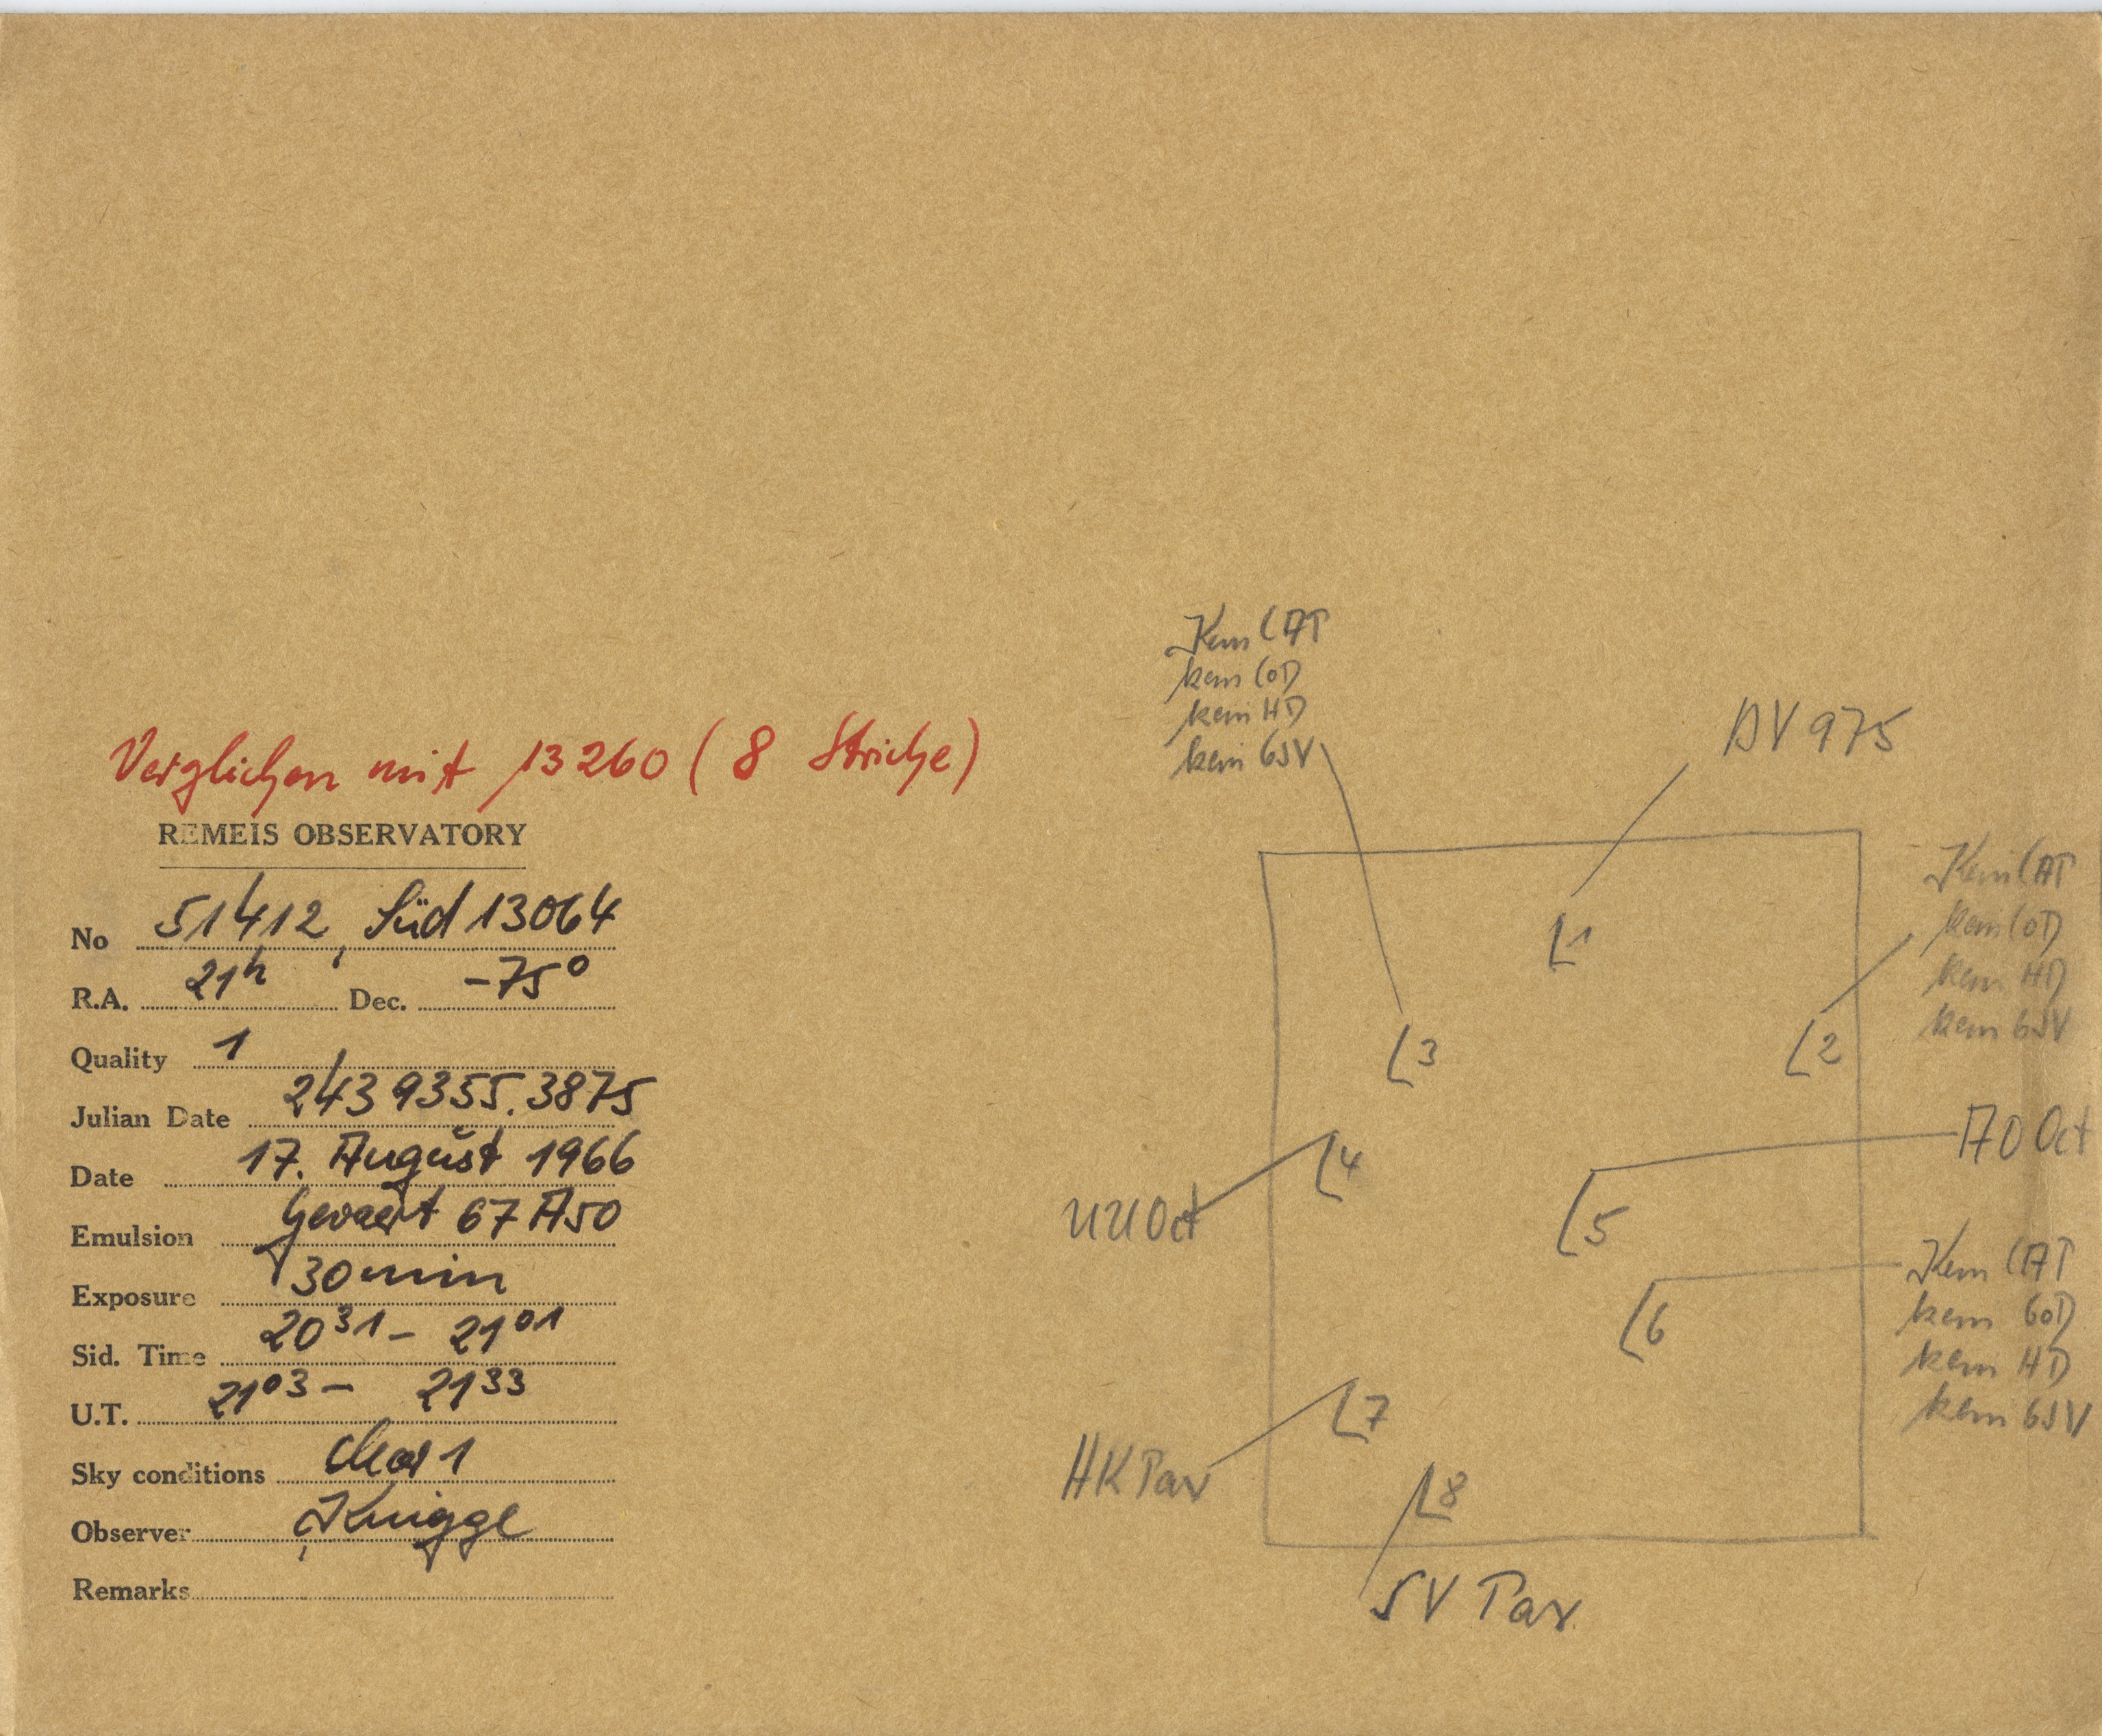 Verglichen mit 13260 (8 Striche)
REMEIS OBSERVATORY
No 51412, Süd 13064
R.A. 21h Dec. -75°
Quality 1
Julian Date 243 9355.3875
Date 17. August 1966
Emulsion Gevaert 67 A50
Exposure 30 min
Sid. Time 20 31 - 21 01
U.T. 21 03 - 21 33
Sky conditions clear 1
Observer Knigge
Remarks
Kein CAP
kein CoD
kein HD
kein GSV
BV 975
1
Kein CAP
kein CoD
kein HD
kein GSV
3
2
AO Oct
4
UU Oct
5
Kein CAP
kein CoD
kein HD
kein GSV
6
7
HK Pav
8
SV Pav